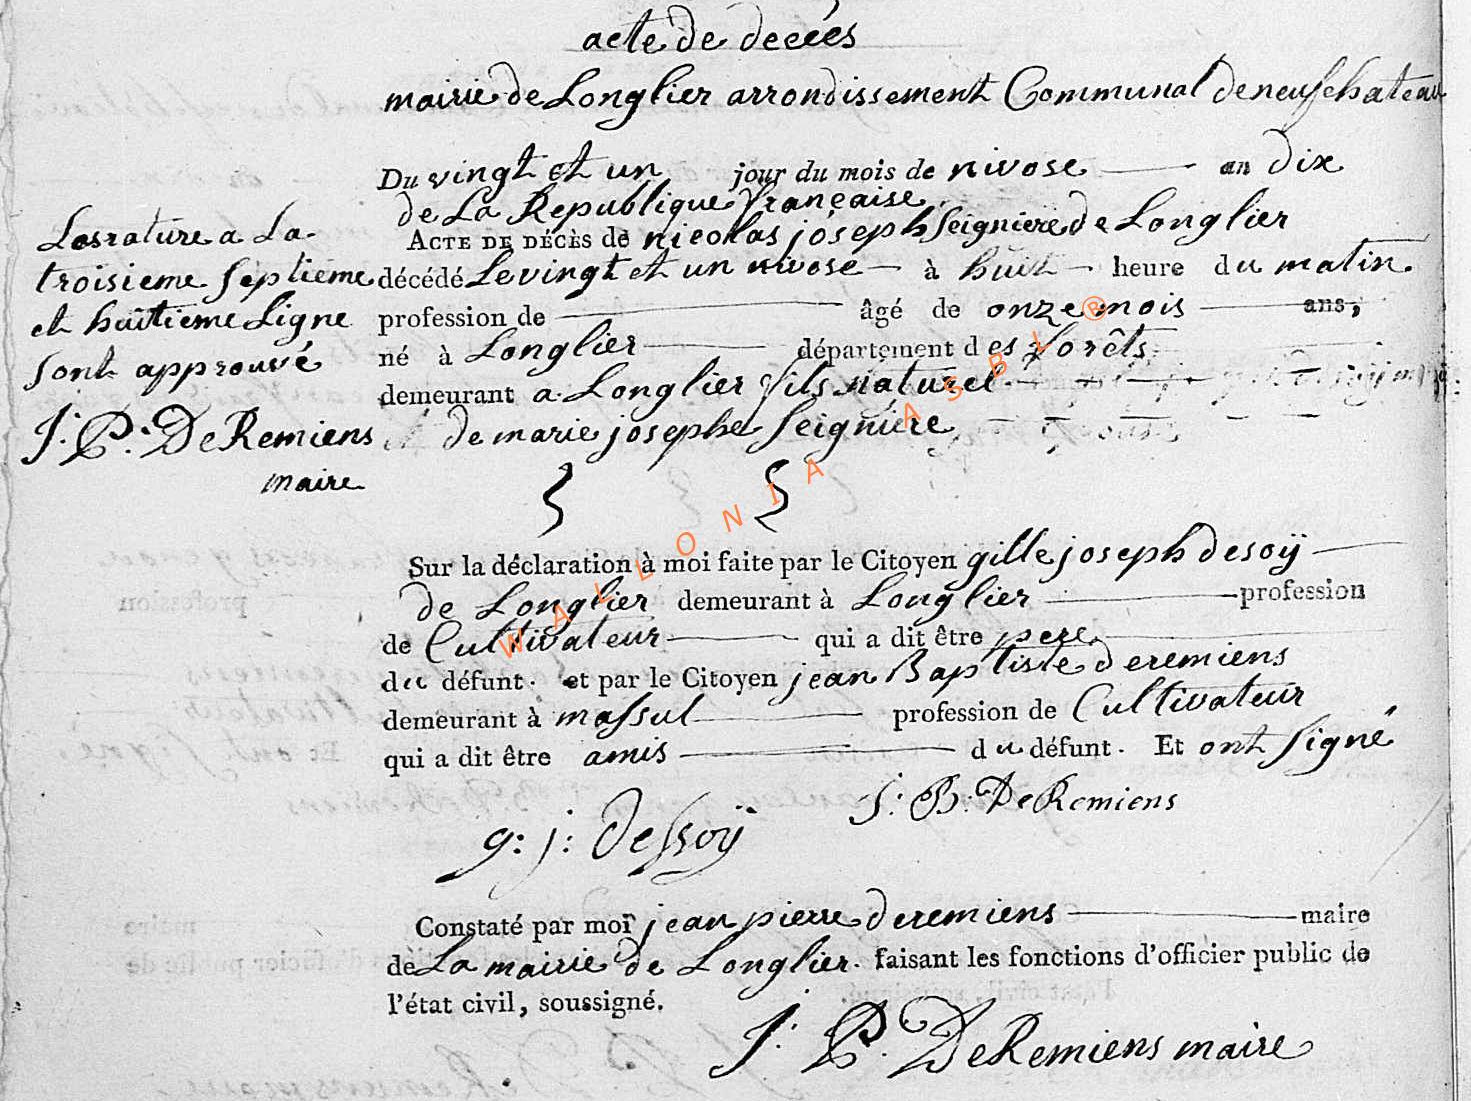 acte de decées
mairie de Longlier arrondissement Communal de neufchateau
Du vingt et un jour du mois de nivose an dix
de La Republique française
ACTE DE DÉCÈS de nicolas joseph Seigniere de Longlier
décédé Le vingt et un nivose à huit heure du matin.
profession de âgé de onze mois ans,
né à Longlier département des forêts
demeurant a Longlier fils naturel
de marie josephe Seigniere
Lasrature a La
troisieme Septieme
et huitieme Ligne
Sont approuvé
J: P: DeRemiens
maire
Sur la déclaration à moi faite par le Citoyen gille joseph desoÿ
de Longlier demeurant à Longlier profession
de Cultivateur qui a dit être pere
du défunt. et par le Citoyen jean Baptiste deremiens
demeurant à massul profession de Cultivateur
qui a dit être amis du défunt. Et ont Signé
J: B: DeRemiens
g: j: Dessoÿ
Constaté par moi jean pierre deremiens maire
de La mairie de Longlier. faisant les fonctions d'officier public de
l'état civil, soussigné.
J: P: DeRemiens maire
WALLONIA ASBL ®